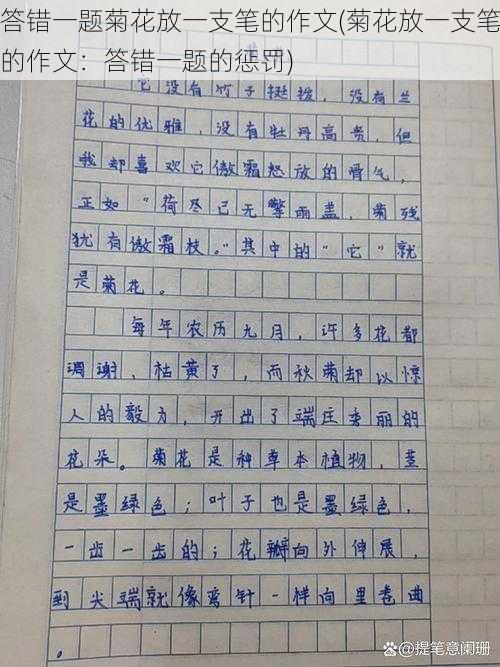 答错一题菊花放一支笔的作文(菊花放一支笔
的作文：答错一题的惩罚)
它没有竹子挺拔，没有兰
花的优雅，没有牡丹高贵，但
我却喜欢它傲霜怒放的骨气，
正如“荷尽已无擎雨盖，菊残
犹有傲霜枝。”其中的“它”就
是菊花。
每年农历九月，许多花都
凋谢、枯黄了，而秋菊却以惊
人的毅力，开出了端庄秀丽的
花朵。菊花是种草本植物，茎
是墨绿色；叶子也是墨绿色，
一齿一齿的；花瓣向外伸展，
到尖端就像弯针一样向里卷曲
。
@提笔意阑珊